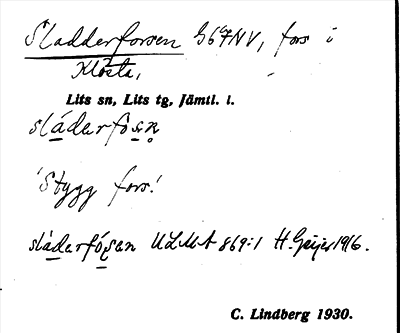 Sladderforsen G67NV, fors i
Klösta,
Lits sn, Lits tg, Jämtl. l.
sláderfo̱sn̥
'Stygg fors.'
sláderfósen ULMA 869:1 H. Geijer 1916.
C. Lindberg 1930.